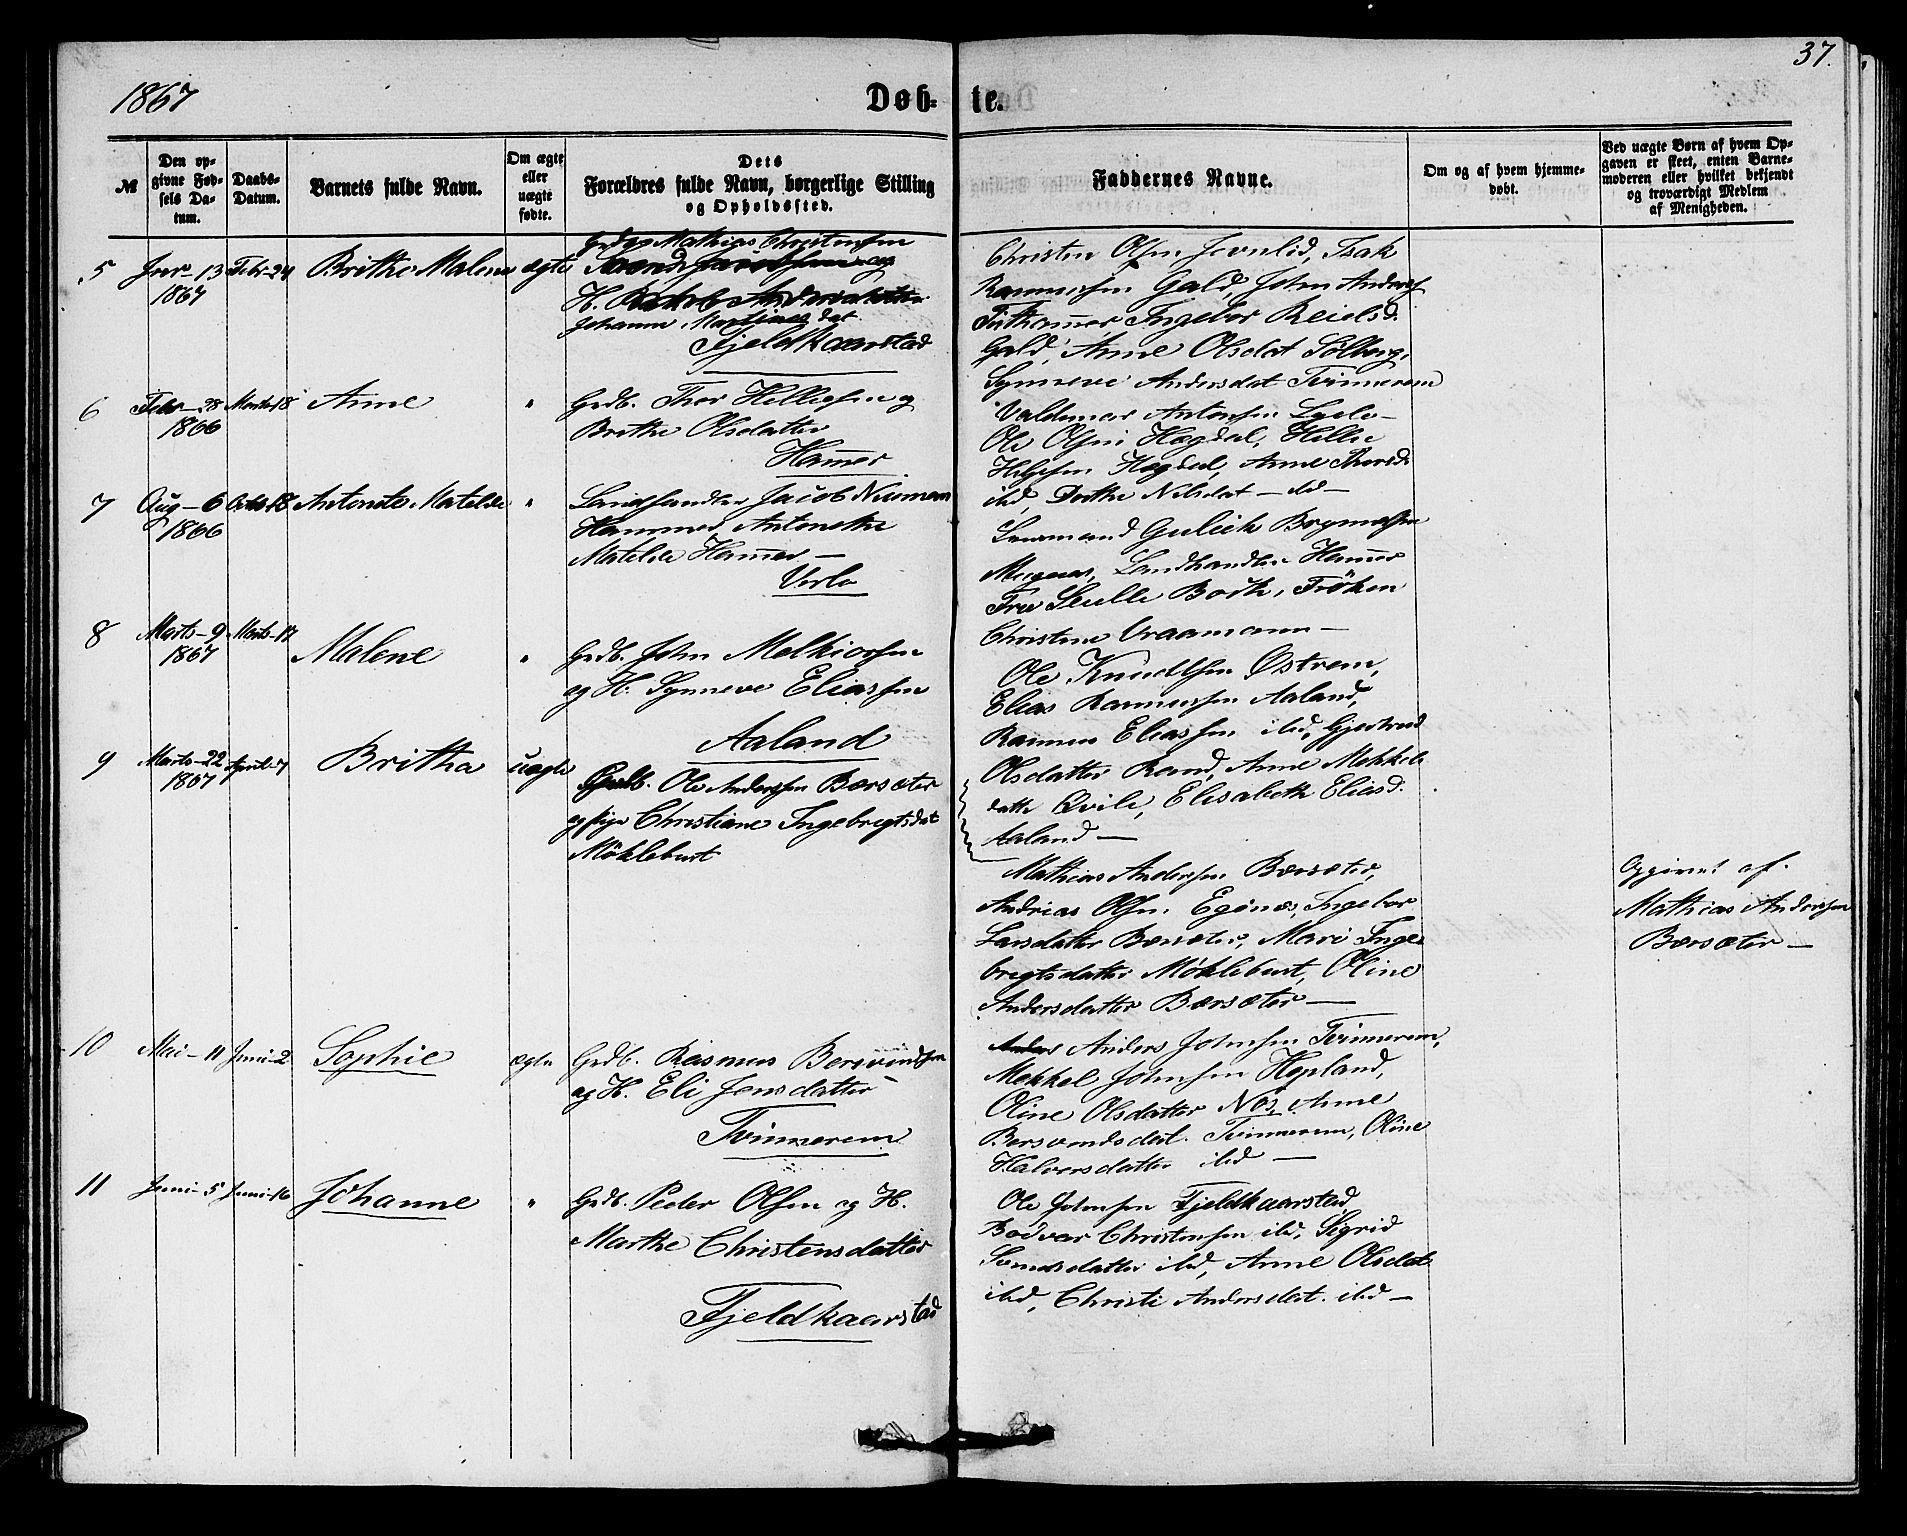 37.
1867
Døb-
te.
№
Den op-
givne Fød-
sels Da-
tum.
Daabs-
Datum.
Barnets fulde Navn.
Om ægte
eller
uægte
fødte.
Dets
Forældres fulde Navn, borgerlige Stilling
og Opholdssted.
Faddernes Navne.
Om og af hvem hjemme-
døbt.
Ved uægte Børn af hvem Op-
gaven er skeet, enten Barne-
moderen eller hvilket bekjendt
og troværdigt Medlem
af Menigheden.
5 Jnr-13 Febr-24 Brithe Malene ægte
1867
Mathias Christensen
H.
Johanne Martines dat
Fjeldkaarstad
Christen Olsen Isak
Rasmussen Gald, John Anders
Ingebor Reielsd.
Gald, Anne Olsdat Solberg,
Synneve Andersdat Tvinnerem
6 Febr-28 Marts-18 Anne "
1866
Grdb. Thor Hellessen og
Brithe Olsdatter
Hammer
Valdemar Antonsen
Ole Olsen Hægdal, Helle
Helgesen Hægdal, Anne Thorsd.
ibd, Dorthe Nilsdat - ibd -
7 Aug-6 Octb-18 Antonette Matelde "
1866
Landhandler Jacob Neuman
Hammer, Antonethe
Matilde Hammer -
Lensmand Gulick Brynnelsen
Landhandler Hammer
Fru Both, Fröken
Christine Vraamann -
8 Marts-9 Marts-17 Malene "
1867
Grdb. John Melkiorsen
og H. Synneve Eliassen
Aaland
Ole Knudtsen Østrem,
Elias Rasmussen Aaland,
Rasmus Eliassen ibd, Gjertrud
Olsdatter Rand, Anne Mekkels
datter Qvile, Elisabeth Eliasd.
Aaland -
9 Marts-22 April-7 Britha uægte
1867
Grdb. Ole Anderssen Børsæter
og pige Christiane Ingebregtsdat
Möklebust
Mathias Anderssen Børsæter,
Andrias Olsen Egenæs, Ingebor
Larsdatter Børsæter, Mari Inge-
bregtsdatter Möklebust, Oline
Andersdatter Børsæter -
Opgivet af
Mathias Anderssen
Børsæter -
10 Mai-11 Juni-2 Sophie ægte
Grdb. Rasmus Bersvendsen
og H. Eli Jensdatter
Tvinnerem
Anders Anders Johnsen Tvinnerem,
Mekkel Johnsen Hopland,
Oline Olsdatter Nös, Anne
Bersvendsdat. Tvinnerem, Oline
Halvorsdatter ibd -
11 Juni-5 Juni-16 Johanne "
Grdb. Peder Olsen og H.
Marthe Christensdatter
Fjeldkaarstad
Ole Johnsen Fjeldkaarstad
Bødvar Christensen ibd, Sigrid
ibd, Anne Olsdat
ibd, Christi Andersdat. ibd -